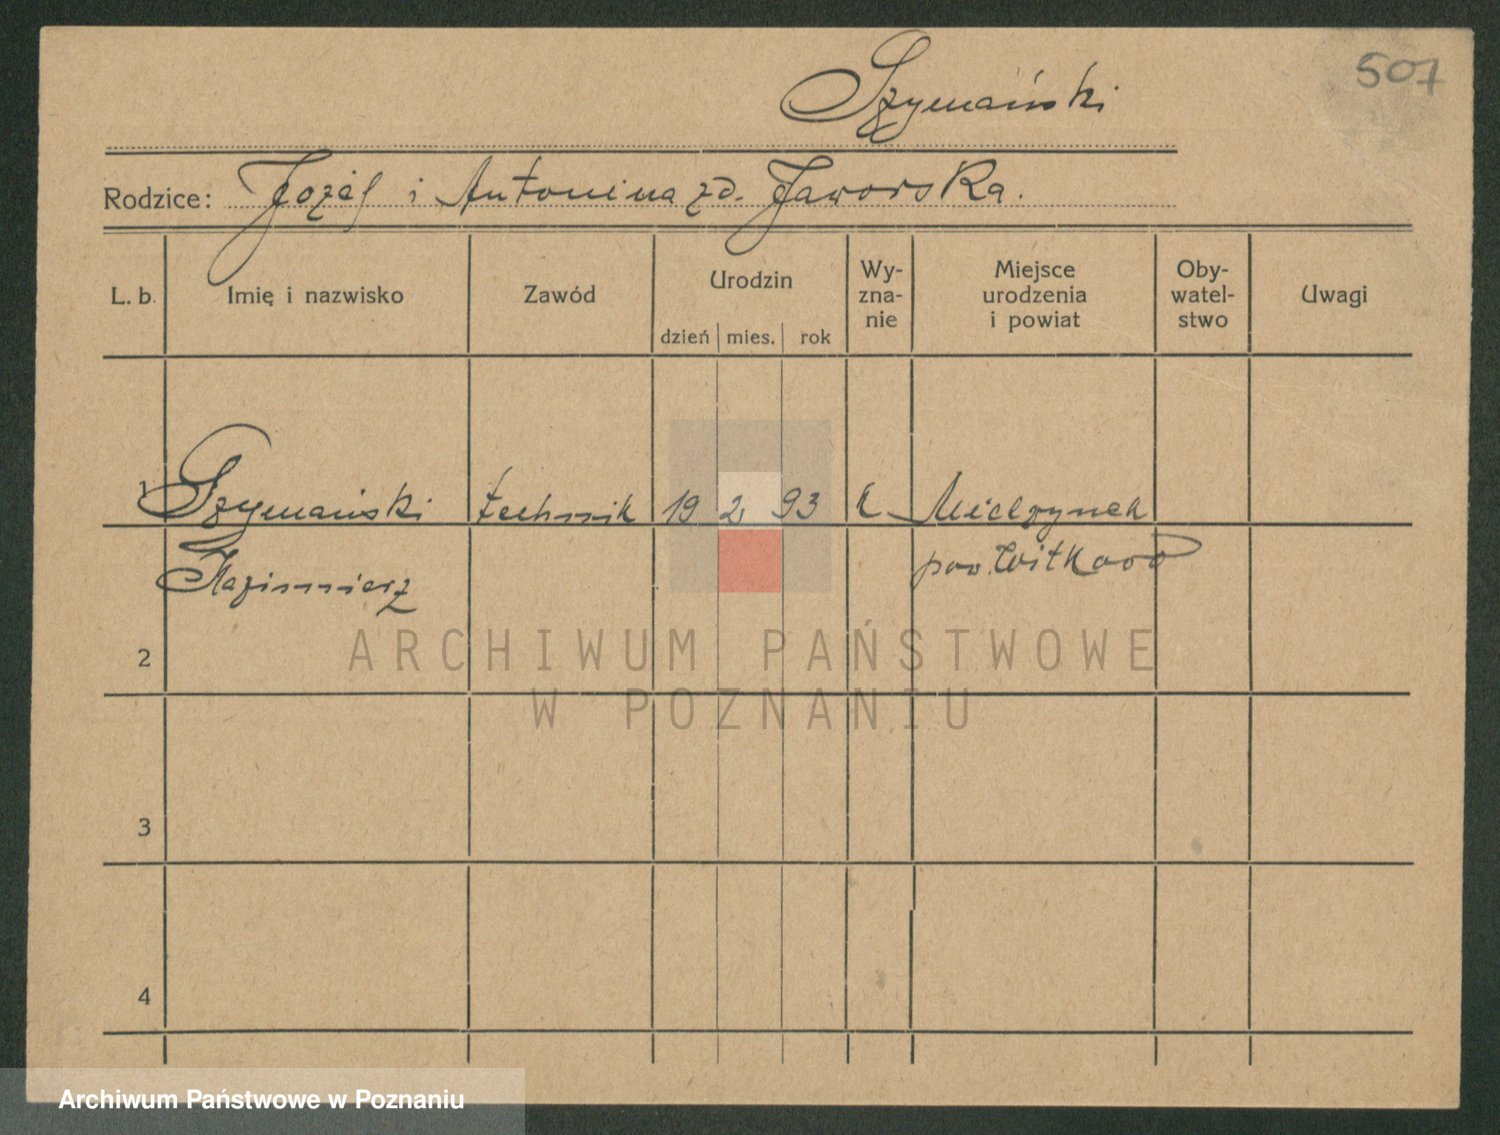 507
Szymański
Rodzice: Józef i Antonina zd. Jaworska.
L. b. Imię i nazwisko Zawód Urodzin Wy- Miejsce Oby- Uwagi
zna- urodzenia watel-
nie i powiat stwo
dzień mies. rok
1 Szymański technik 19 2 93 k Mielzynek
Kazimierz pow. Witkowo
2
3
4
ARCHIWUM PAŃSTWOWE
W POZNANIU
Archiwum Państwowe w Poznaniu